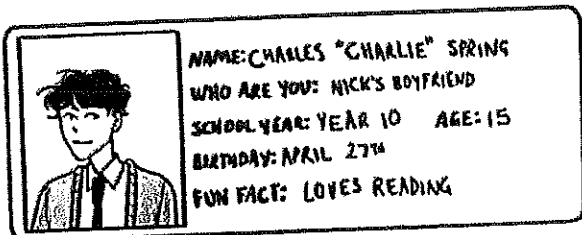 NAME: CHARLES "CHARLIE" SPRING
WHO ARE YOU: NICK'S BOYFRIEND
SCHOOL YEAR: YEAR 10 AGE: 15
BIRTHDAY: APRIL 27TH
FUN FACT: LOVES READING